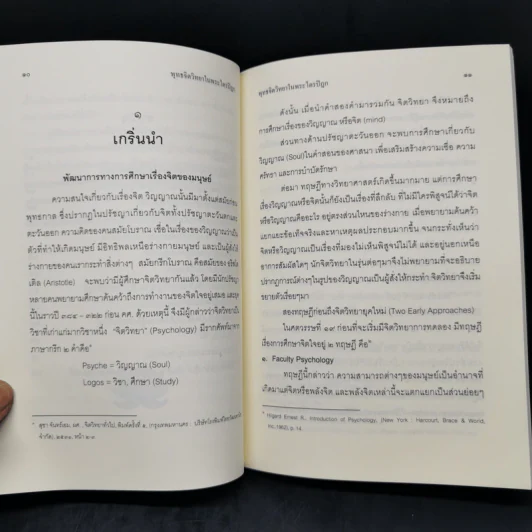 ๑๐
พุทธจิตวิทยาในพระไตรปิฎก
๑
เกริ่นนำ
พัฒนาการทางการศึกษาเรื่องจิตของมนุษย์
ความสนใจเกี่ยวกับเรื่องจิต วิญญาณนั้นมีมาตั้งแต่สมัยก่อน
พุทธกาล ซึ่งปรากฏในปรัชญาเกี่ยวกับจิตทั้งปรัชญาตะวันตกและ
ตะวันออก ความคิดของคนสมัยโบราณ เชื่อในเรื่องของวิญญาณว่าเป็น
ตัวที่ทำให้เกิดมนุษย์ มีอิทธิพลเหนือร่างกายมนุษย์ และเป็นผู้สั่งให้
ร่างกายของคนเรากระทำสิ่งต่างๆ สมัยกรีกโบราณ คือสมัยของอริสโต
เติล (Aristotle) จะพบว่ามีผู้ศึกษาจิตวิทยากันแล้ว โดยมีนักปรัชญา
หลายคนพยายามศึกษาค้นคว้าถึงการทำงานของจิตใจอยู่เสมอ และ
นั้นในราวปี ๓๘๔ – ๓๒๒ ก่อน คศ. ด้วยเหตุนี้ จึงมีผู้กล่าวว่าจิตวิทยาเป็น
วิชาที่เก่าแก่มากวิชาหนึ่ง "จิตวิทยา" (Psychology) มีรากศัพท์มาจาก
ภาษากรีก ๒ คำคือ
Psyche = วิญญาณ (Soul)
Logos = วิชา, ศึกษา (Study)
สุชา จันทน์เอม, ผศ., จิตวิทยาทั่วไป, พิมพ์ครั้งที่ ๑, (กรุงเทพมหานคร : บริษัทโรงพิมพ์ไทยวัฒนาพานิช
จำกัด), หน้า ๒-๓
พุทธจิตวิทยาในพระไตรปิฎก
๑๑
ดังนั้น เมื่อนำคำสองคำมารวมกัน จิตวิทยา จึงหมายถึง
การศึกษาเรื่องของวิญญาณ หรือจิต (mind)
ส่วนทางด้านปรัชญาตะวันออก จะพบการศึกษาเกี่ยวกับ
วิญญาณ (Soul)ในคำสอนของศาสนา เพื่อเสริมสร้างความเชื่อ ความ
ศรัทธา และการบำบัดรักษา
ต่อมา ทฤษฎีทางวิทยาศาสตร์เกิดขึ้นมากมาย แต่การศึกษา
เรื่องวิญญาณหรือจิตนั้นก็ยังเป็นเรื่องที่ลึกลับ ที่ไม่มีใครพิสูจน์ได้ว่าจิต
หรือวิญญาณคืออะไร อยู่ตรงส่วนไหนของร่างกาย เมื่อพยายามค้นคว้า
แยกและข้อเท็จจริงและหาเหตุผลประกอบมากขึ้น จนกระทั่งเห็นว่า
จิตหรือวิญญาณเป็นเรื่องที่มองไม่เห็นพิสูจน์ไม่ได้ และอยู่นอกเหนือ
อาการสัมผัสใดๆ นักจิตวิทยาในรุ่นต่อๆมา จึงไม่พยายามที่จะอธิบาย
ปรากฏการณ์ต่างๆในรูปของวิญญาณเป็นผู้สั่งให้กระทำ จิตวิทยาจึงเริ่ม
ขยายตัวเรื่อยๆมา
สองทฤษฎีก่อนถึงจิตวิทยายุคใหม่ (Two Early Approaches)
ในศตวรรษที่ ๑๙ ก่อนที่จะเริ่มมีจิตวิทยาการทดลอง มีทฤษฎี
เรื่องการศึกษาจิตใจอยู่ ๒ ทฤษฎี คือ
๑. Faculty Psychology
ทฤษฎีนี้กล่าวว่า ความสามารถต่างๆของมนุษย์เป็นอำนาจที่
เกิดมาแต่จิตหรือพลังจิต และพลังจิตเหล่านี้จะแตกแยกเป็นส่วนย่อยๆ
Hilgard Ernest R., Introduction of Psychology, (New York : Harcourt, Brace & World,
Inc,1962), p. 14.